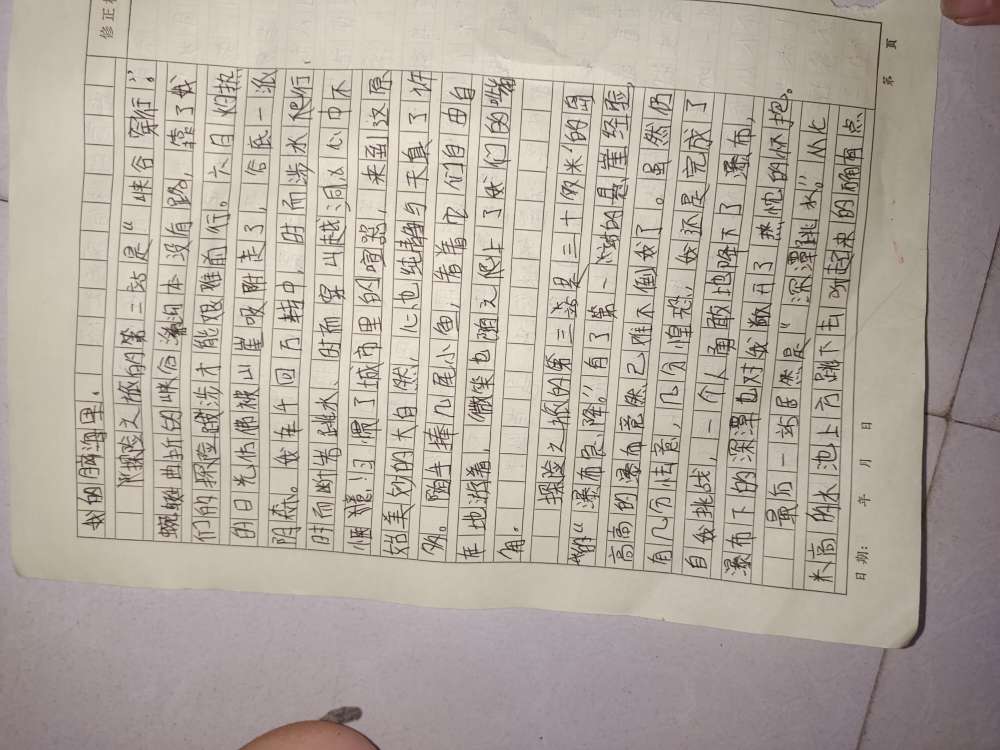 修正栏
我的脑海里。
探险之旅的第二站是“峡谷穿行”。
蜿蜒曲折的峡谷溯本没有路,靠了我
们的探险跋涉才能艰难前行。六月灼热
的日光仿佛被山崖吸附走了,谷底一派
阴森。我在千回万转中,时而涉水爬行,
时而断岩跳水、时而穿山越洞。心中不
惬意:习惯了城市里的喧嚣,来到这原
始美妙的大自然,心也纯静与天真了许
多。随手捧几尾小鱼,看着它们自由自
在地游着,微笑也随之爬上了我们的嘴
角。
探险之旅的第三站是三十八米的高
的“瀑布急降”。有了第一站的悬崖经验,
高高的瀑布竟然已难不倒我了。虽然仍
有几分怯意,几分惶恐,我还是完成了
自我挑战,一个人勇敢地降下了瀑布,
瀑布下的深潭也对我敞开了热忱的怀抱。
最后一站居然是“深潭跳水”。从化
米高的水池上方跳下去听起来的确有点
日期: 年 月 日
第 页